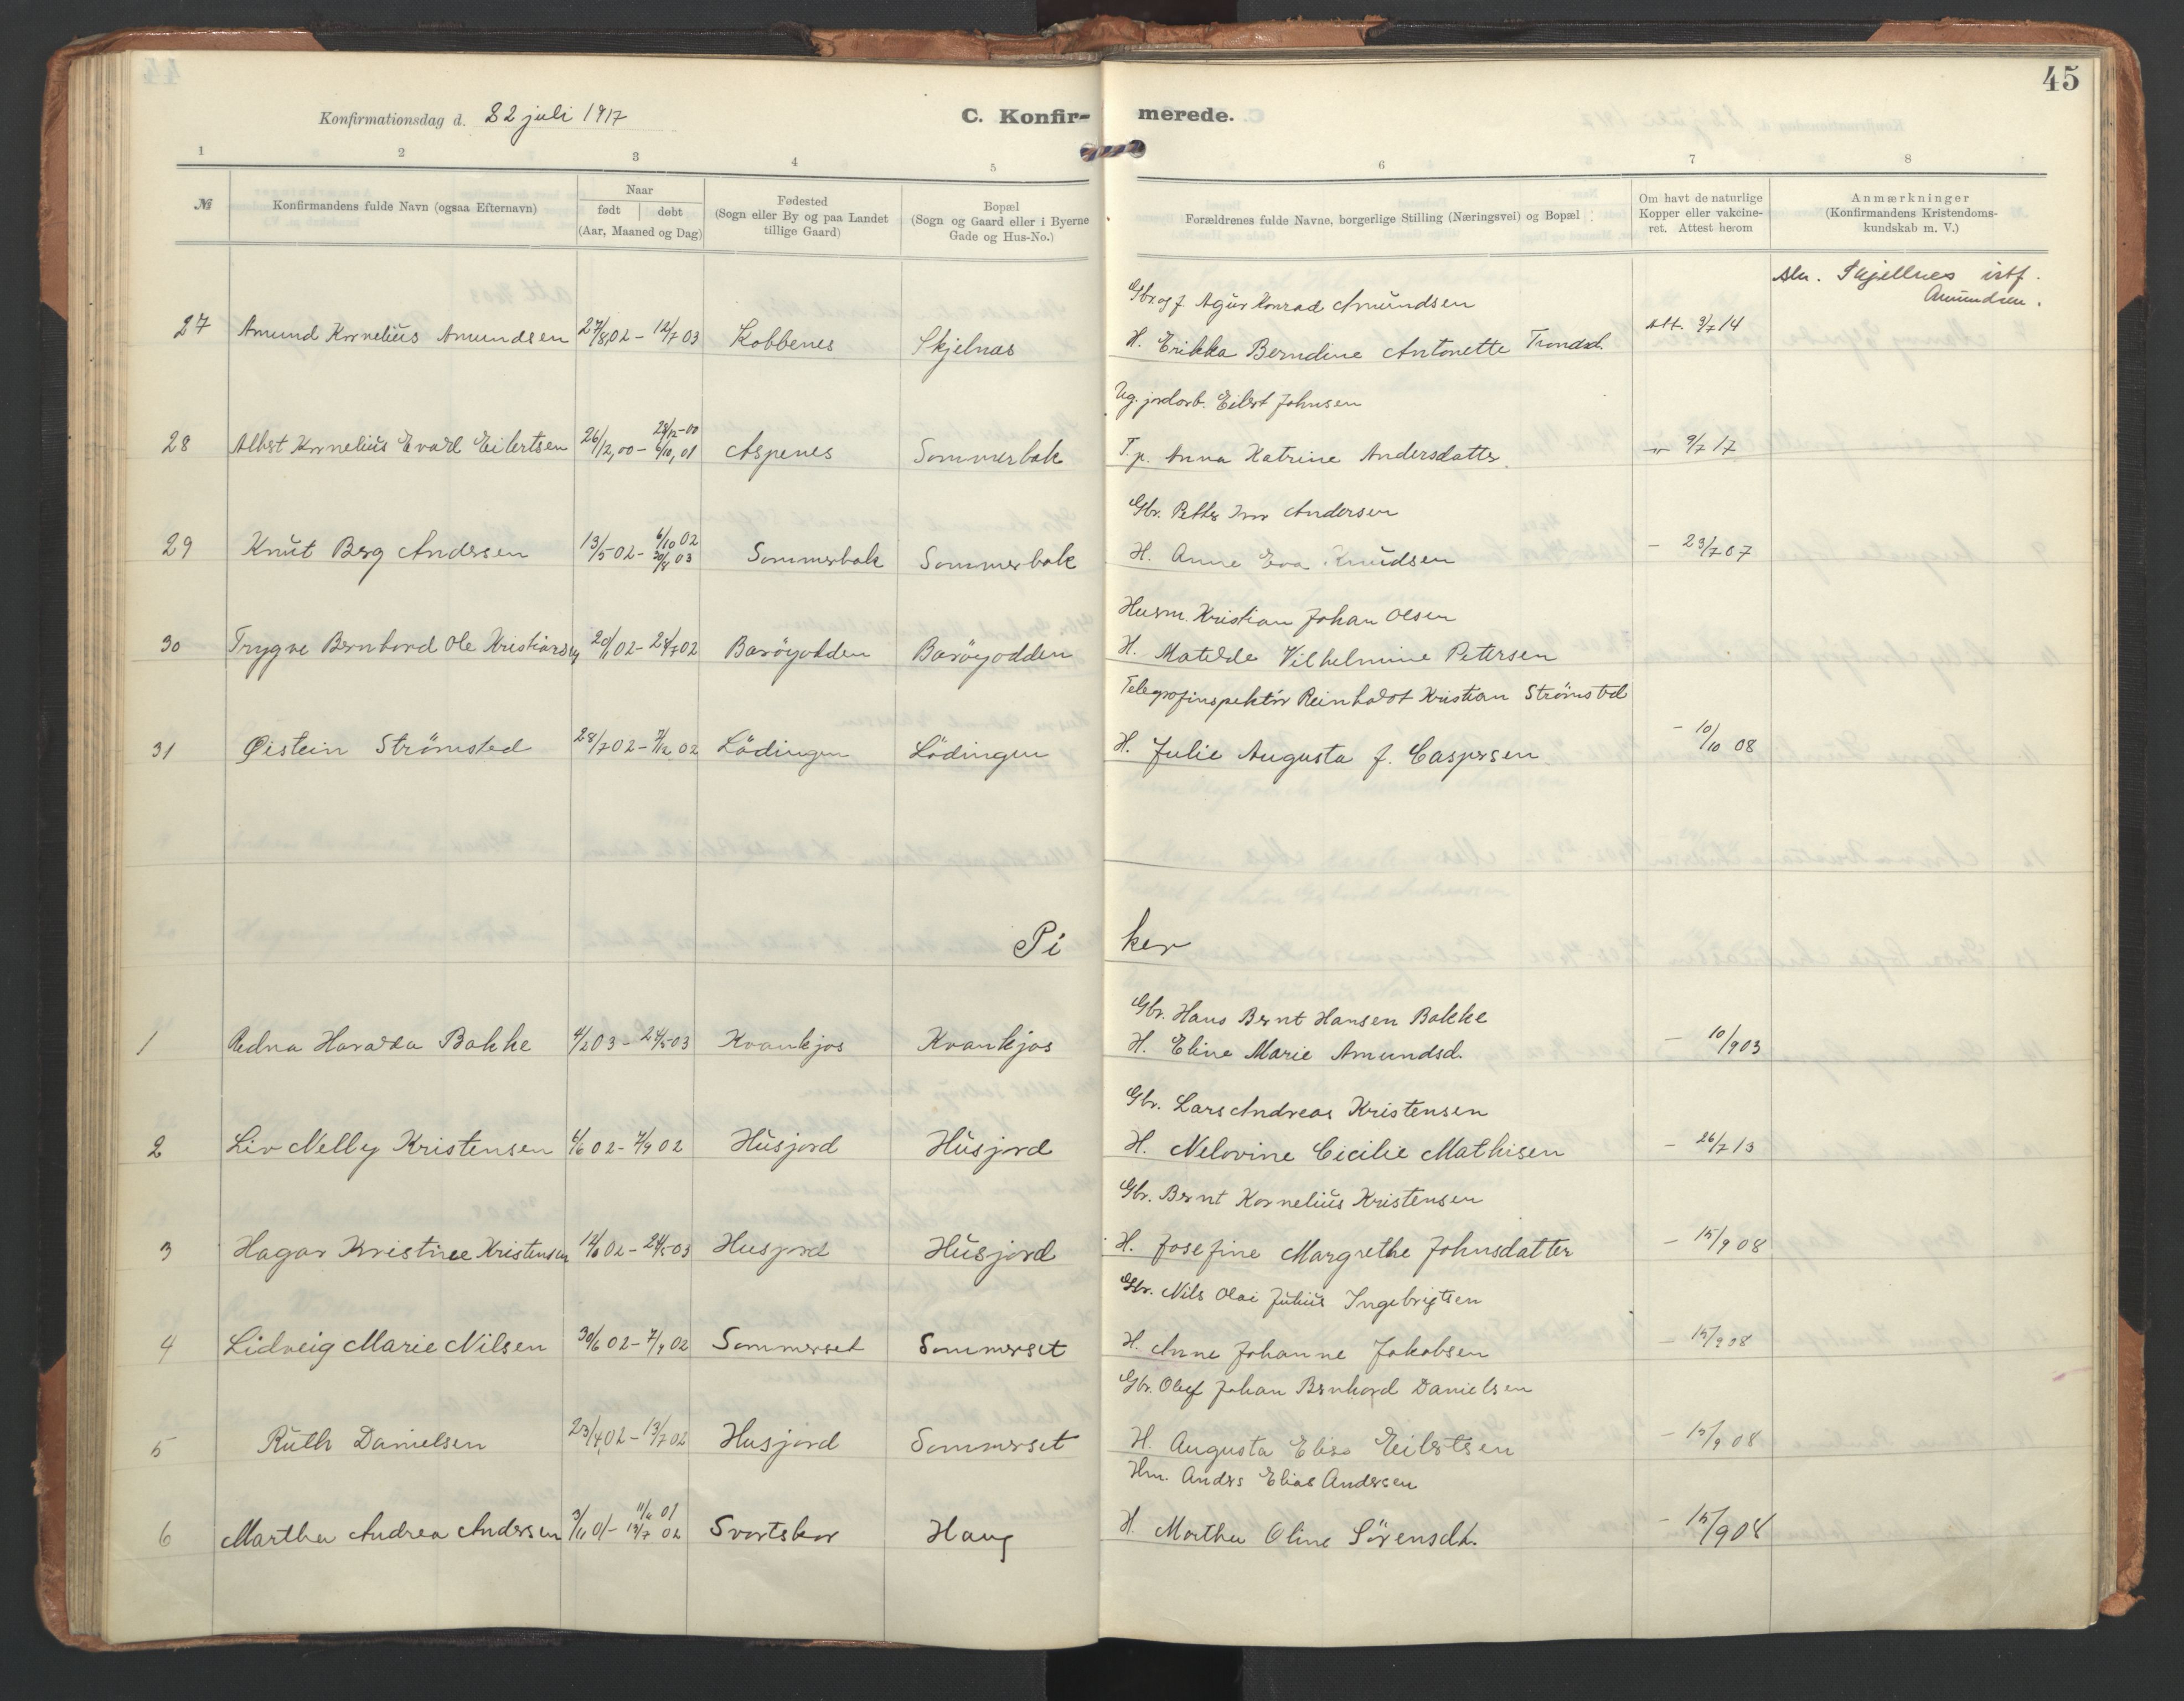 45
Konfirmationsdag d. 22 juli 1917
C. Konfir- merede.
1 2 3 4 5 6 7 8
№ Konfirmandens fulde Navn (ogsaa Efternavn) Naar født døbt (Aar, Maaned og Dag) Fødested (Sogn eller By og paa Landet tillige Gaard) Bopæl (Sogn og Gaard eller i Byerne Gade og Hus-No.) Forældrenes fulde Navne, borgerlige Stilling (Næringsvei) og Bopæl Om havt de naturlige Kopper eller vakcineret. Attest herom Anmærkninger (Konfirmandens Kristendomskundskab m. V.)
Skjellnes istf.
Amundsen.
Gbr. og f. Agur Konrad Amundsen
27 Amund Kornelius Amundsen 27/8,02 - 12/7 03 Kobbenes Skjelnas H. Erikka Berndine Antonette Trondsd. Att. 9/7 14
Ug. jordarb. Eilert Johnsen
28 Albert Kornelius Evald Eilertsen 26/12,00 - 28/12-00 6/10,01 Aspenes Sommerbak T. p. Anna Katrine Andersdatter. -"- 9/7 17
Gbr. Petter Ivar Andersen
29 Knut Berg Andersen 13/5 02 - 6/10 02 Sommerbak Sommerbak H. Anne Eva Knudsen - 23/7 07
Husm. Kristian Johan Olsen
30 Trygve Bernhard Ole Kristiansen 02 - 02 Barøyodden Barøyodden H. Matilde Vilhelmine Petersen
Telegrafinspektör Reinholdt Kristian Strömsted
31 Øistein Strömsted 28/7 02 - 7/12 02 Lödingen Lödingen H. Julie Augusta f. Caspersen - 10/10 08
Piker
Gbr. Hans Bernt Hansen Bakke
1 Haralda Bakke 4/2 03 - 24/5 03 Kvankjos Kvankjos H. Eline Marie Amundsd. - 10/9 03
Gbr. Lars Andreas Kristensen
2 Liv Nelly Kristensen 4/6 02 - 7/9 02 Husjord Husjord H. Nelovine Cicilie Mathisen - 26/7 13
Gbr. Bernt Kornelius Kristensen
3 Hagar Kristine Kristensen 02 - 24/5 03 Husjord Husjord H. Josefine Margrethe Johnsdatter - 15/9 08
Gbr. Nils Olai Julius Ingebrigtsen
4 Lidveig Marie Nilsen 30/6 02 - 7/9 02 Sommerset Sommerset H. Anne Johanne Jakobsen - 15/9 08
Gbr. Oluf Johan Bernhard Danielsen
5 Ruth Danielsen 23/4,02 - 13/7 02 Husjord Sommerset H. Augusta Elise Eilertsen - 15/9 08
Hm. Anders Elias Andersen
6 Martha Andrea Andersen 3/4 01 - 11/4 01 13/7 02 Svartskar Haug H. Martha Oline Sörensdt. - 15/9 08